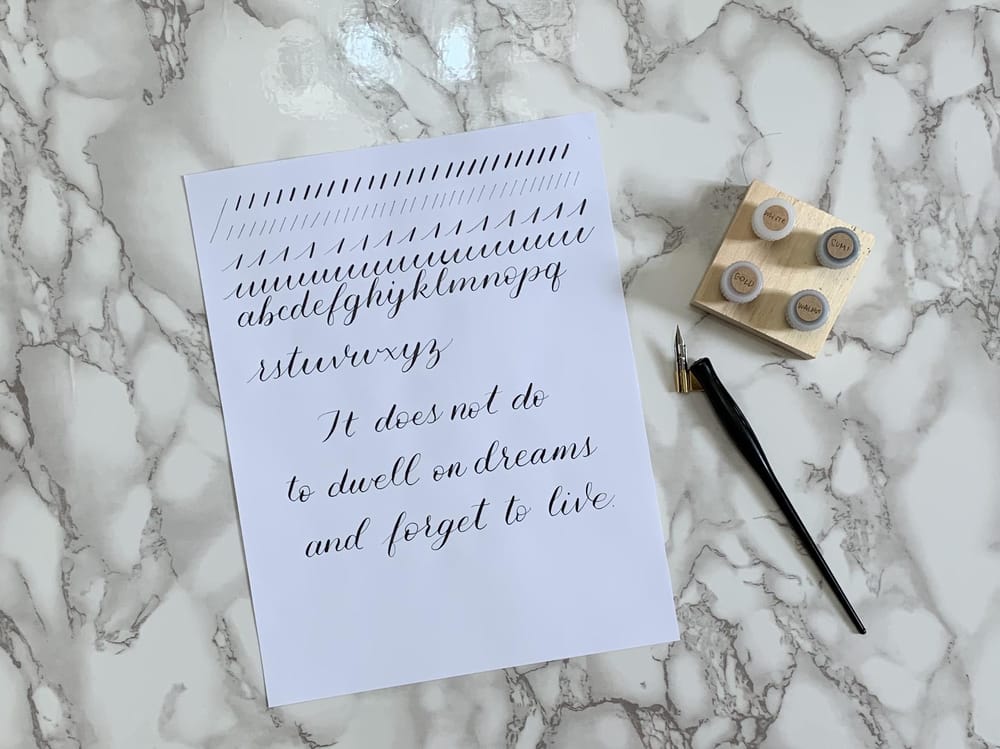 abcdefghijklmnopq
rstuvwxyz
It does not do
to dwell on dreams
and forget to live.
WHITE
SUMI
GOLD
WALNUT